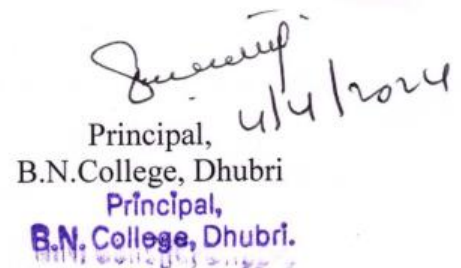 4/4/2024
Principal,
B.N.College, Dhubri
Principal,
B.N. College, Dhubri.